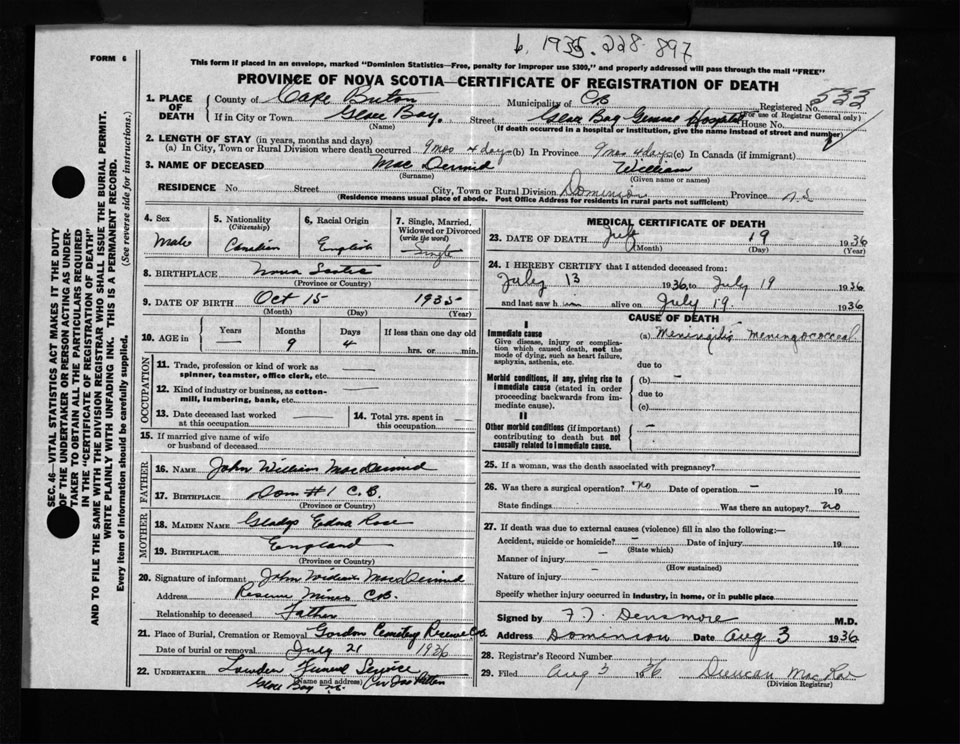 b. 1935. 228. 897
FORM 6
This form if placed in an envelope, marked "Dominion Statistics—Free, penalty for improper use $300," and properly addressed will pass through the mail "FREE"
PROVINCE OF NOVA SCOTIA—CERTIFICATE OF REGISTRATION OF DEATH
1. PLACE OF DEATH
County of Cape Breton Municipality of CB Registered No. 533
(For use of Registrar General only)
If in City or Town Glace Bay. Street Glace Bay General Hospital House No.
(Name) (If death occurred in a hospital or institution, give the name instead of street and number)
2. LENGTH OF STAY (in years, months and days)
(a) In City, Town or Rural Division where death occurred 9 mos 4 days (b) In Province 9 mos 4 days (c) In Canada (if immigrant)
3. NAME OF DECEASED Mac Dermid William
(Surname) (Given name or names)
RESIDENCE No Street City, Town or Rural Division Dominion Province N.S
(Residence means usual place of abode. Post Office Address for residents in rural parts not sufficient)
4. Sex Male
5. Nationality (Citizenship) Canadian
6. Racial Origin English
7. Single, Married, Widowed or Divorced (write the word) Single
8. BIRTHPLACE Nova Scotia
(Province or Country)
9. DATE OF BIRTH Oct 15 1935
(Month) (Day) (Year)
10. AGE in Years — Months 9 Days 4 If less than one day old
hrs. or min.
OCCUPATION
11. Trade, profession or kind of work as spinner, teamster, office clerk, etc. —
12. Kind of industry or business, as cotton-mill, lumbering, bank, etc. —
13. Date deceased last worked at this occupation —
14. Total yrs. spent in this occupation —
15. If married give name of wife or husband of deceased
FATHER
16. NAME John William MacDermid
17. BIRTHPLACE Dom #1 C.B.
(Province or Country)
MOTHER
18. MAIDEN NAME Gladys Edna Rose
19. BIRTHPLACE England
(Province or Country)
20. Signature of informant John William MacDermid
Address Reserve Mines C.B.
Relationship to deceased Father
21. Place of Burial, Cremation or Removal Gordon Cemetery Reserve C.B.
Date of burial or removal July 21 1936
22. UNDERTAKER Funeral Service
(Name and address)
Glace Bay N.S.
MEDICAL CERTIFICATE OF DEATH
23. DATE OF DEATH July 19 1936
(Month) (Day) (Year)
24. I HEREBY CERTIFY that I attended deceased from:
July 13 1936, to July 19 1936
and last saw him alive on July 19. 1936
CAUSE OF DEATH
I
Immediate cause
Give disease, injury or complication which caused death, not the mode of dying, such as heart failure, asphyxia, asthenia, etc.
(a) Meningitis meningococcal.
due to
Morbid conditions, if any, giving rise to immediate cause (stated in order proceeding backwards from immediate cause).
(b) —
due to
(c)
II
Other morbid conditions (if important) contributing to death but not causally related to immediate cause. —
25. If a woman, was the death associated with pregnancy?
26. Was there a surgical operation? No Date of operation — 19
State findings Was there an autopsy? No
27. If death was due to external causes (violence) fill in also the following:—
Accident, suicide or homicide? — Date of injury 19
(State which)
Manner of injury —
(How sustained)
Nature of injury —
Specify whether injury occurred in industry, in home, or in public place
Signed by F. T. Densmore M.D.
Address Dominion Date Aug 3 1936
28. Registrar's Record Number
29. Filed Aug 3 1936 Duncan MacRae
(Division Registrar)
SEC. 46—VITAL STATISTICS ACT MAKES IT THE DUTY OF THE UNDERTAKER OR PERSON ACTING AS UNDERTAKER TO OBTAIN ALL THE PARTICULARS REQUIRED IN THE "CERTIFICATE OF REGISTRATION OF DEATH"
AND TO FILE THE SAME WITH THE DIVISION REGISTRAR WHO SHALL ISSUE THE BURIAL PERMIT.
WRITE PLAINLY WITH UNFADING INK. THIS IS A PERMANENT RECORD.
Every item of information should be carefully supplied. (See reverse side for instructions.)